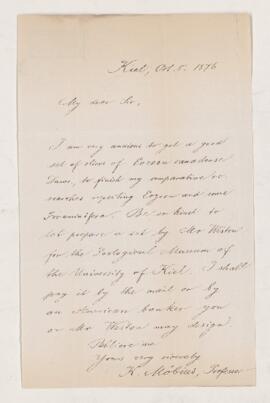 Kiel, Oct. 5. 1876
My dear Sir,
I am very anxious to get a good
set of slices of Eozoon canadense
Daws., to finish my comparative re-
searches respecting Eozoon and some
Foraminifera. Be so kind to
let prepare a set by Mr Weston
for the Zoological Museum of
the University of Kiel. I shall
pay it by the mail or by
an American banker you
or Mr Weston may design.
Believe me
Yours very sincerely
K. Möbius, Professor